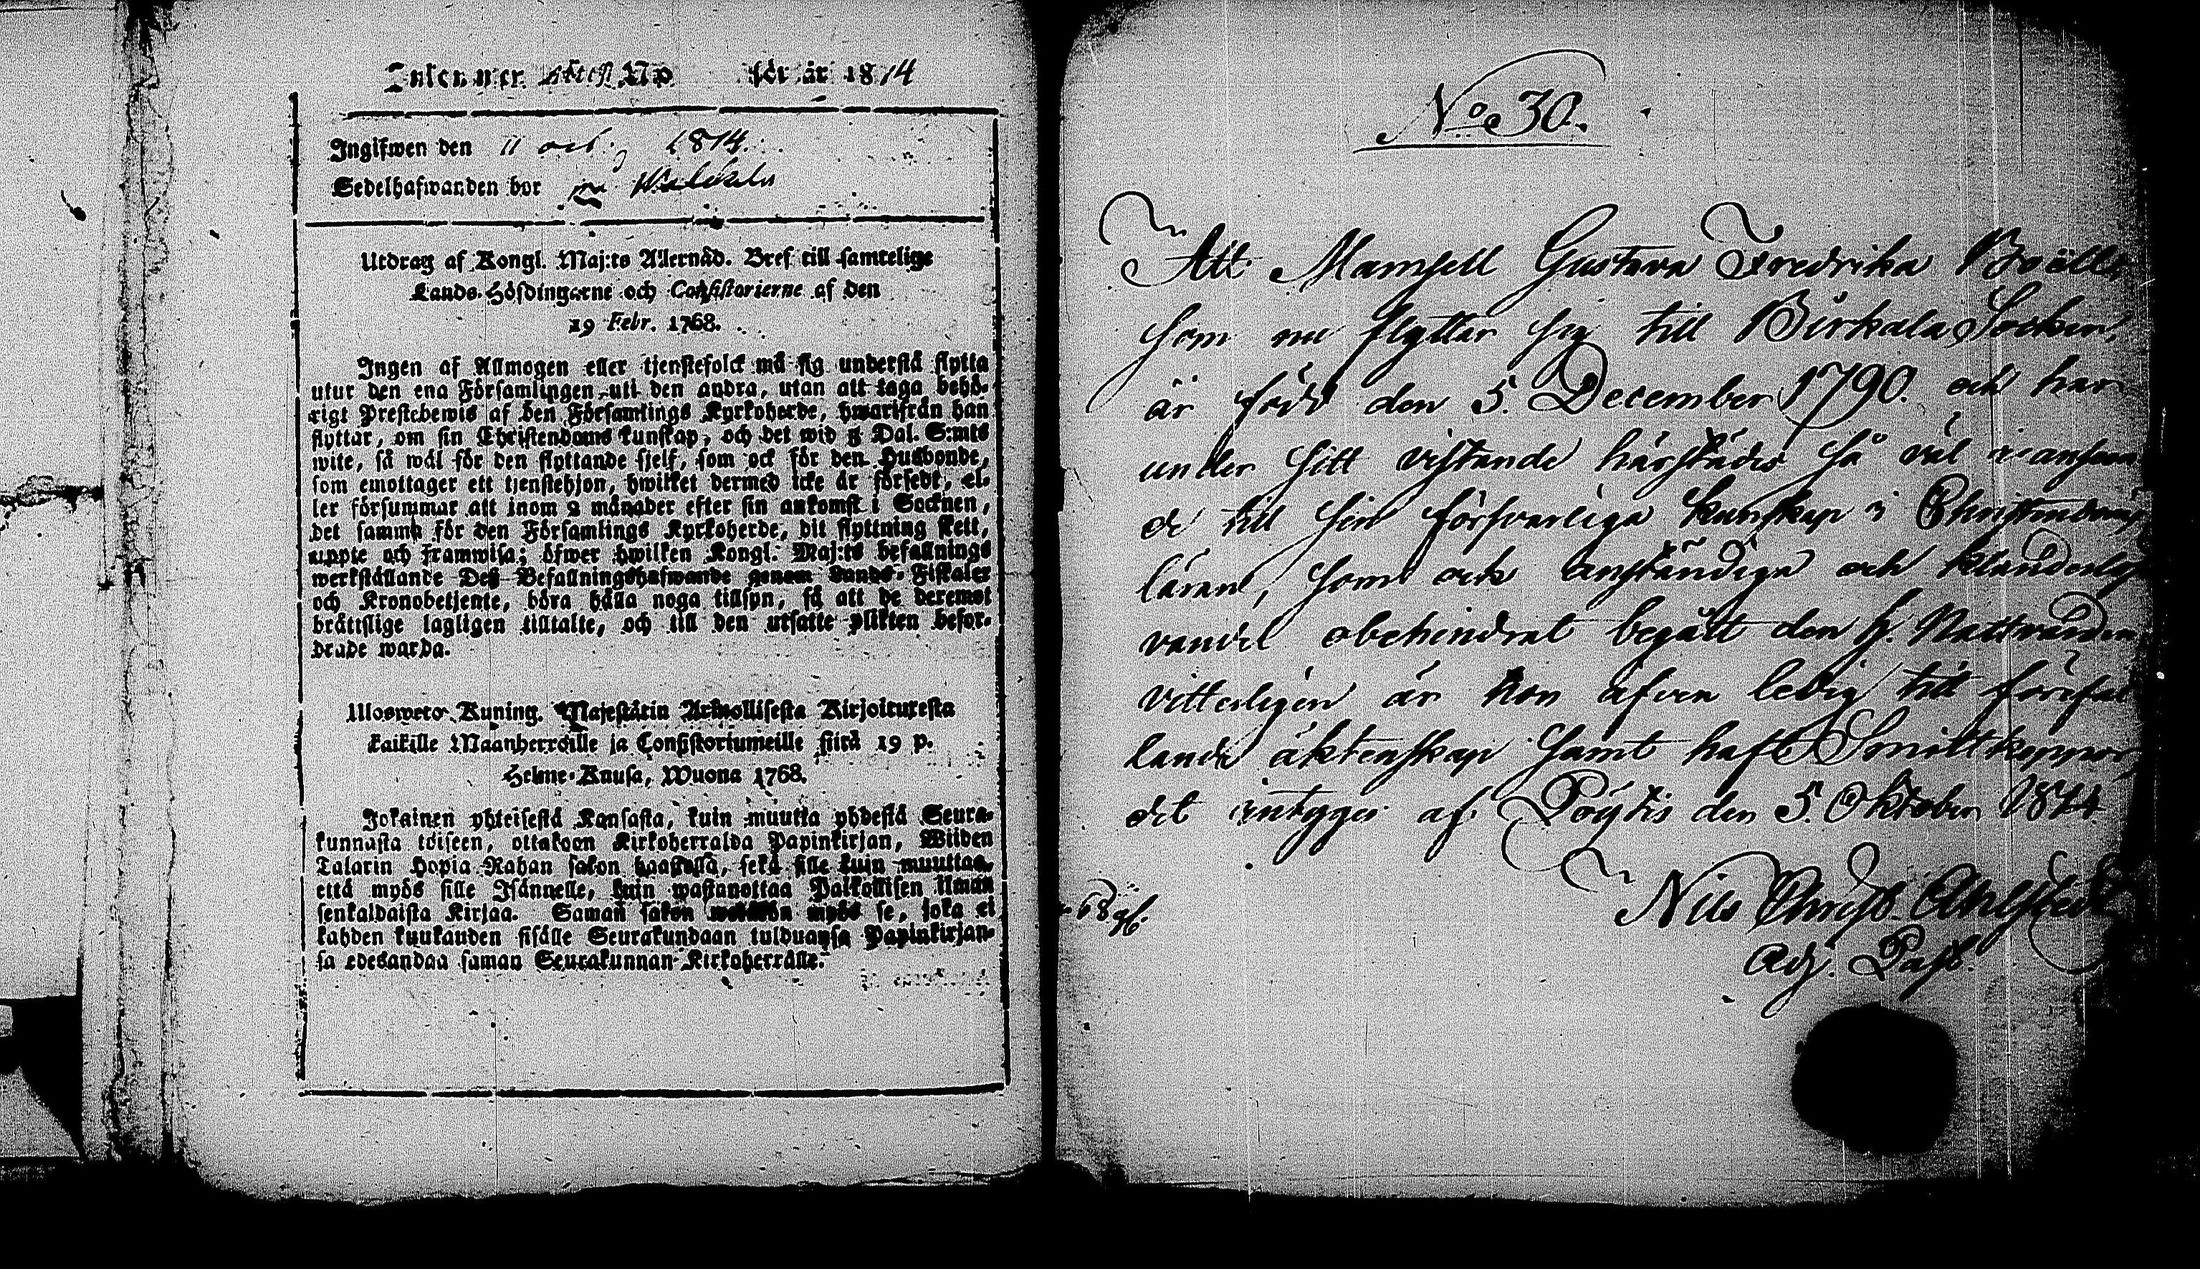 för år 1814
Ingifwen den 11 oct. 1814.
Sedelhafwanden bor på
Utdrag af Kongl. Maj:ts Allernåd. Bref till samtelige
Lands-Höfdingarne och Consistorierne af den
19 Febr. 1768.
Ingen af Allmogen eller tjenstefolck må sig understå flytta
utur den ena Församlingen uti den andra, utan att taga behö-
rigt Prestebewis af den Församlings Kyrkoherde, hwarifrån han
flyttar, om sin Christendoms kunskap, och det wid 5 Dal. S:mts
wite, så wäl för den flyttande sjelf, som ock för den Husbonde,
som emottager ett tjenstehjon, hwilket dermed icke är försedt, el-
ler försummar att inom 2 månader efter sin ankomst i Socknen,
det samma för den Församlings Kyrkoherde, dit flyttning skett,
uppte och framwisa; öfwer hwilken Kongl. Maj:ts befallnings
werkställande Deß Befallningshafwande genom Lands-Fiskaler
och Kronobetjente, böra hålla noga tillsyn, så att de deremot
bråttslige lagligen tilltalte, och till den utsatte plikten befor-
drade warda.
Ulosweto Kuning. Majestätin Armollisesta Kirjoituresta
kaikille Maanherroille ja Consistoriumeille siitä 19 p.
Helme-Kuusa, Wuona 1768.
Jokainen yhteisestä Kansasta, kuin muutta yhdestä Seura-
kunnasta toiseen, ottakoon Kirkoherralda Papinkirjan, Wiiden
Talarin Hopia Rahan sakon haastolla, sekä sille kuin muuttaa,
että myös sille Isännelle, kuin wastanottaa Palkollisen ilman
senkaldaista Kirjaa. Saman sakon wetäkön myös se, joka ei
kahden kuukauden sisälle Seurakundaan tulduansa Papinkirjan-
sa edesandaa saman Seurakunnan Kirkoherralle.
No 30.
Att Mamsell Gustava Fredrika
som nu flyttar sig till Birkala Socken,
är född den 5. December 1790. och har
under sitt vistande härstädes så väl i anseen
de till sin försvarliga kunskap i Christendoms
läran, som ock anständiga och klanderlösa
vandel obehindrat begått den H. Nattvarden
vitterligen är hon äfven ledig till förefal
lande äktenskap samt haft Smittkoppor,
det intygas af Pöytis den 5. Oktober 1814
Nils Christ. Ahlstedt
Adj. Past.